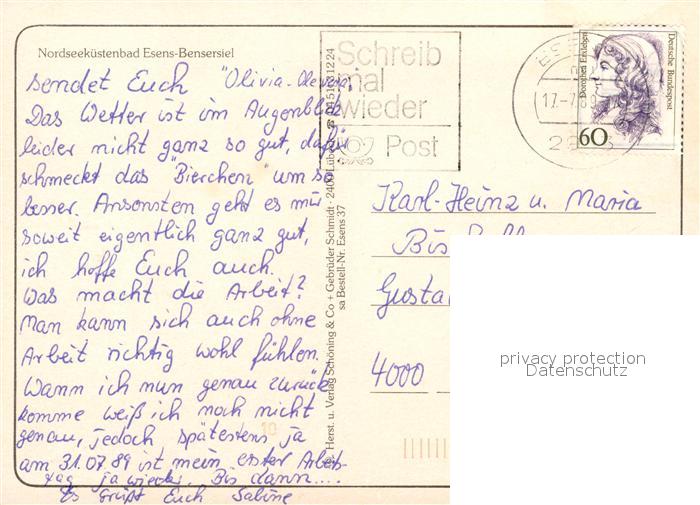 Nordseeküstenbad Esens-Bensersiel
sendet Euch "Olivia-Olevia.
Das Wetter ist im Augenblick
leider nicht ganz so gut, dafür
schmeckt das "Bierchen" um so
besser. Ansonsten geht es mir
soweit eigentlich ganz gut,
ich hoffe Euch auch.
Was macht die Arbeit?
Man kann sich auch ohne
Arbeit richtig wohl fühlen.
Wann ich nun genau zurück
komme weiß ich noch nicht
genau, jedoch spätestens ja
am 31.07.89 ist mein erster Arbeits-
tag ja wieder. Bis dann....
Es grüßt Euch Sabine
Herst. u. Verlag Schöning & Co + Gebrüder Schmidt · 2400 Lübeck
sa Bestell-Nr. Esens 37
Schreib
mal
wieder
Post
17.-7.89
Dorothea Erxleben
Deutsche Bundespost
60
Karl-Heinz u. Maria
Gusta
4000
privacy protection
Datenschutz
10